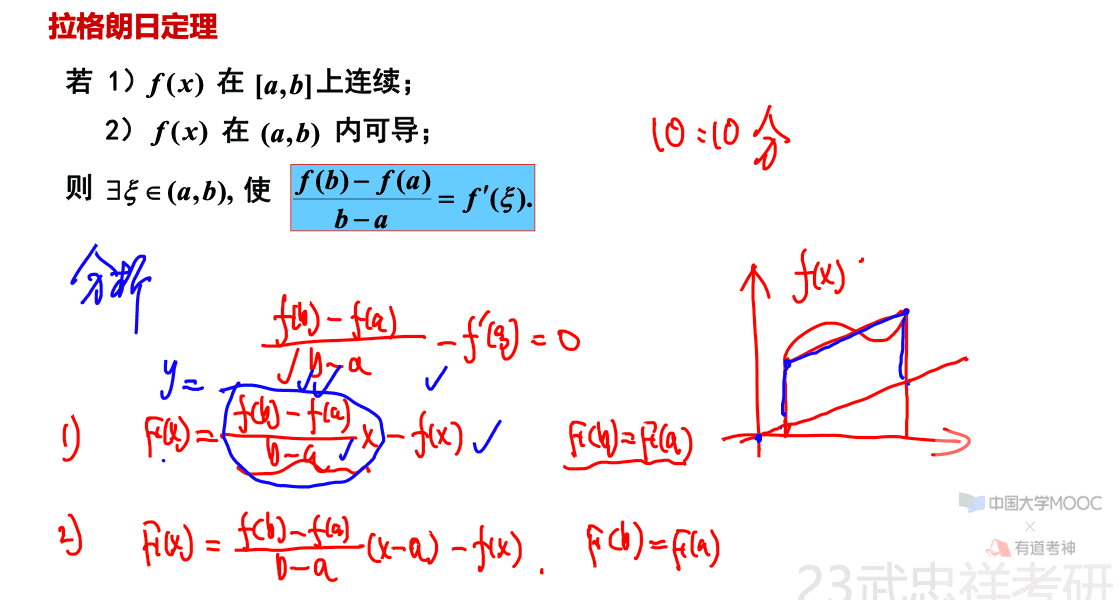 拉格朗日定理
若 1) f(x) 在 [a,b]上连续;
2) f(x) 在 (a,b) 内可导;
则 ∃ξ∈(a,b), 使 (f(b)−f(a))/(b−a) = f′(ξ).
10:10 分
分析
(f(b)−f(a))/(b−a) − f′(ξ) = 0
f(x)
y =
1) F(x) = (f(b)−f(a))/(b−a) x − f(x) F(b)=F(a)
2) F(x) = (f(b)−f(a))/(b−a) (x−a) − f(x). F(b)=F(a)
中国大学MOOC
×
有道考神
23武忠祥考研